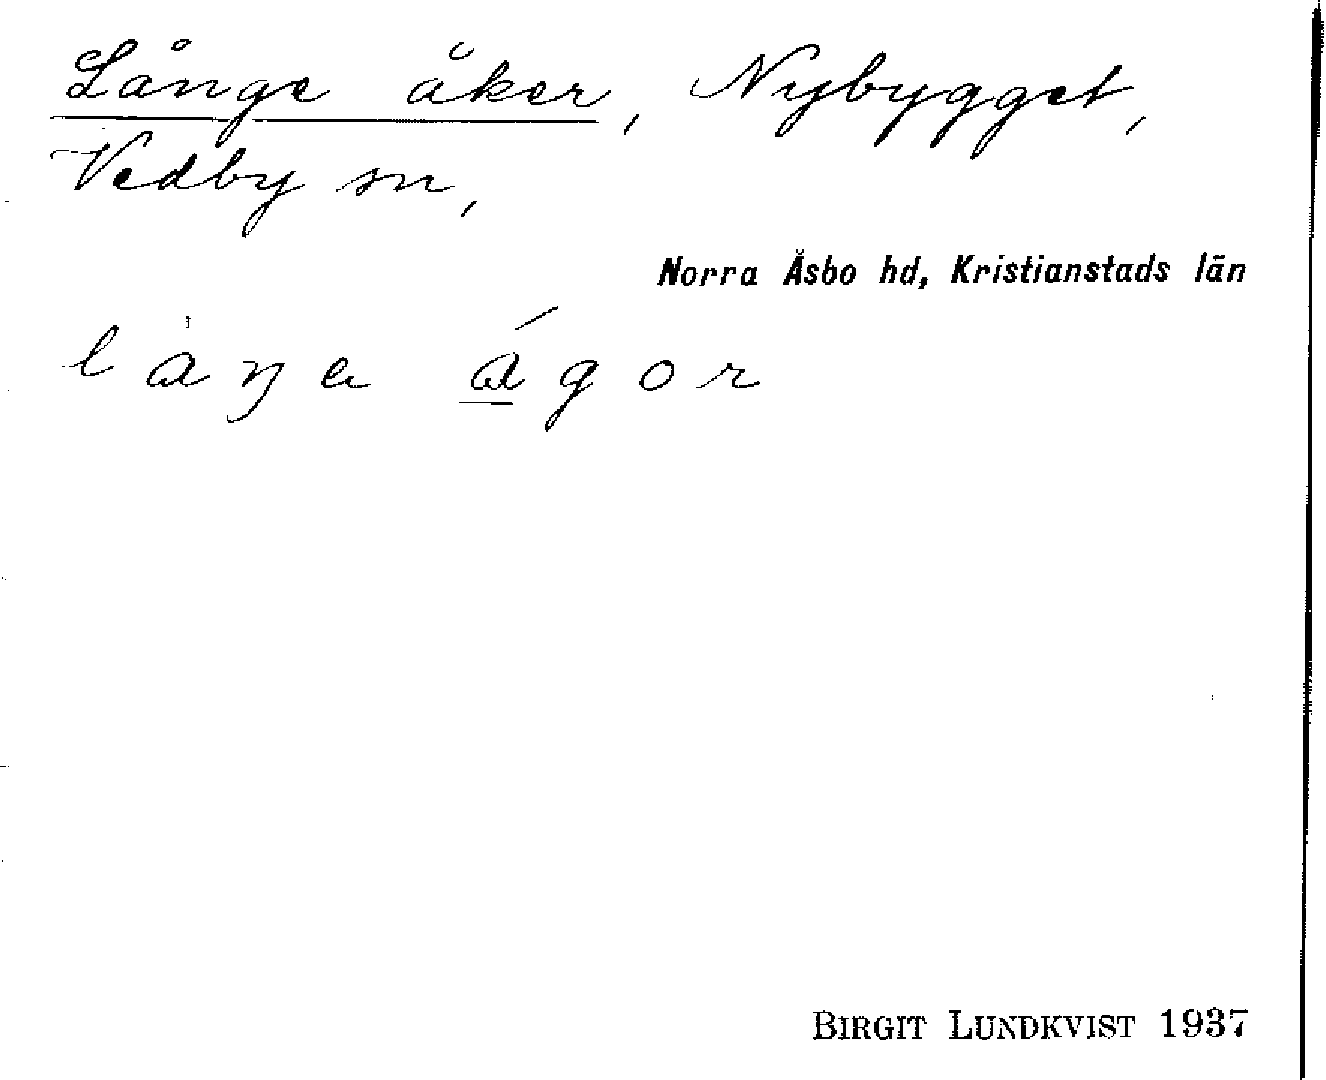 Långe åker, Nybygget,
Vedby sn,
Norra Åsbo hd, Kristianstads län
låŋa ågor
BIRGIT LUNDKVIST 1937